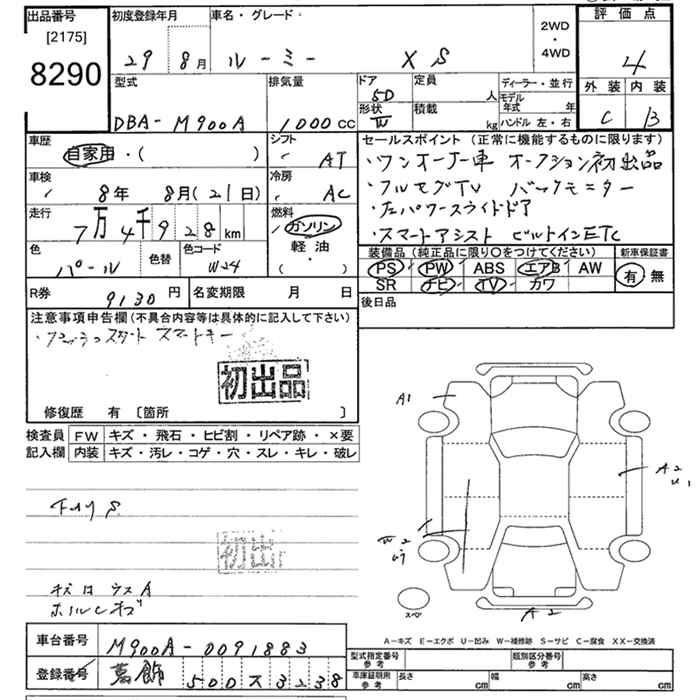 出品番号 初度登録年月 車名・グレード 2WD・4WD 評価点
[2175]
8290
29 8月 ルーミー XS 4
外装 内装
C B
型式 排気量 ドア 定員 ディーラー・並行
5D 人 モデル年式 年
DBA-M900A 1000cc 形状 積載 kg ハンドル 左・右
車歴 シフト セールスポイント (正常に機能するものに限ります)
自家用・( ) AT ・ワンオーナー車 オークション初出品
車検 冷房 ・フルセグTV バックモニター
8年 8月(21日) AC ・左パワースライドドア
走行 燃料 ・スマートアシスト ビルトインETC
7万4千928km ガソリン
軽油
・( )
色 色替 色コード
パール W24
装備品 (純正品に限り○をつけてください) 新車保証書
PS PW ABS エアB AW 有・無
SR ナビ TV カワ
R券 9130円 名変期限 月 日 後日品
注意事項申告欄(不具合内容等は具体的に記入して下さい)
・プッシュスタート スマートキー
初出品
修復歴 有 [箇所 ]
検査員 FW キズ・飛石・ヒビ割・リペア跡・×要
記入欄 内装 キズ・汚レ・コゲ・穴・スレ・キレ・破レ
A1
A2
U1
W2
初出
A2
スペ
A－キズ E－エクボ U－凹み W－補修跡 S－サビ C－腐食 XX－交換済
車台番号 M900A-0091883
型式指定番号 参考 類別区分番号 参考
登録番号 葛飾 500ス3238
車庫証明用 参考 長さ cm 幅 cm 高さ cm